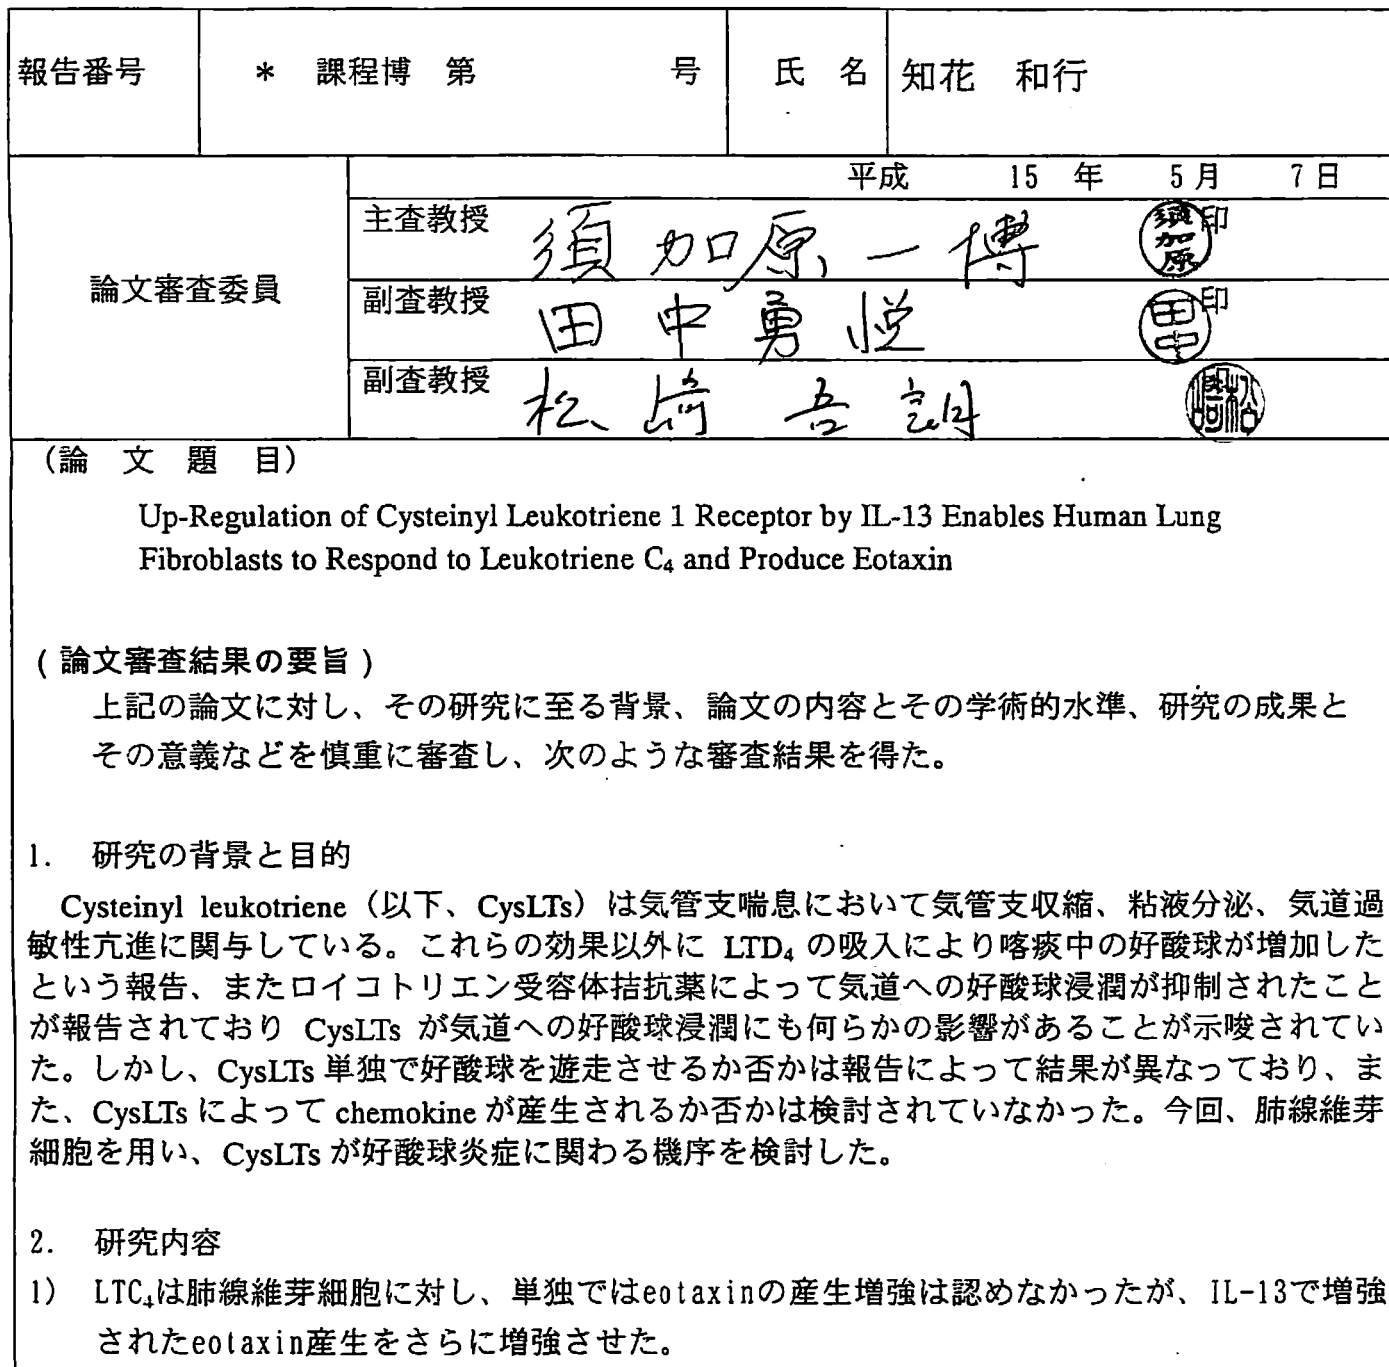 報告番号 * 課程博 第 号 氏 名 知花 和行
平成 15 年 5月 7日
論文審査委員
主査教授 須加原一博 印
須加原
副査教授 田中勇悦 印
田中
副査教授 松﨑吾朗
(論 文 題 目)
Up-Regulation of Cysteinyl Leukotriene 1 Receptor by IL-13 Enables Human Lung
Fibroblasts to Respond to Leukotriene C₄ and Produce Eotaxin
(論文審査結果の要旨)
上記の論文に対し、その研究に至る背景、論文の内容とその学術的水準、研究の成果と
その意義などを慎重に審査し、次のような審査結果を得た。
1. 研究の背景と目的
Cysteinyl leukotriene(以下、CysLTs)は気管支喘息において気管支収縮、粘液分泌、気道過
敏性亢進に関与している。これらの効果以外に LTD₄ の吸入により喀痰中の好酸球が増加した
という報告、またロイコトリエン受容体拮抗薬によって気道への好酸球浸潤が抑制されたこと
が報告されており CysLTs が気道への好酸球浸潤にも何らかの影響があることが示唆されてい
た。しかし、CysLTs 単独で好酸球を遊走させるか否かは報告によって結果が異なっており、ま
た、CysLTs によって chemokine が産生されるか否かは検討されていなかった。今回、肺線維芽
細胞を用い、CysLTs が好酸球炎症に関わる機序を検討した。
2. 研究内容
1) LTC₄は肺線維芽細胞に対し、単独ではeotaxinの産生増強は認めなかったが、IL-13で増強
されたeotaxin産生をさらに増強させた。